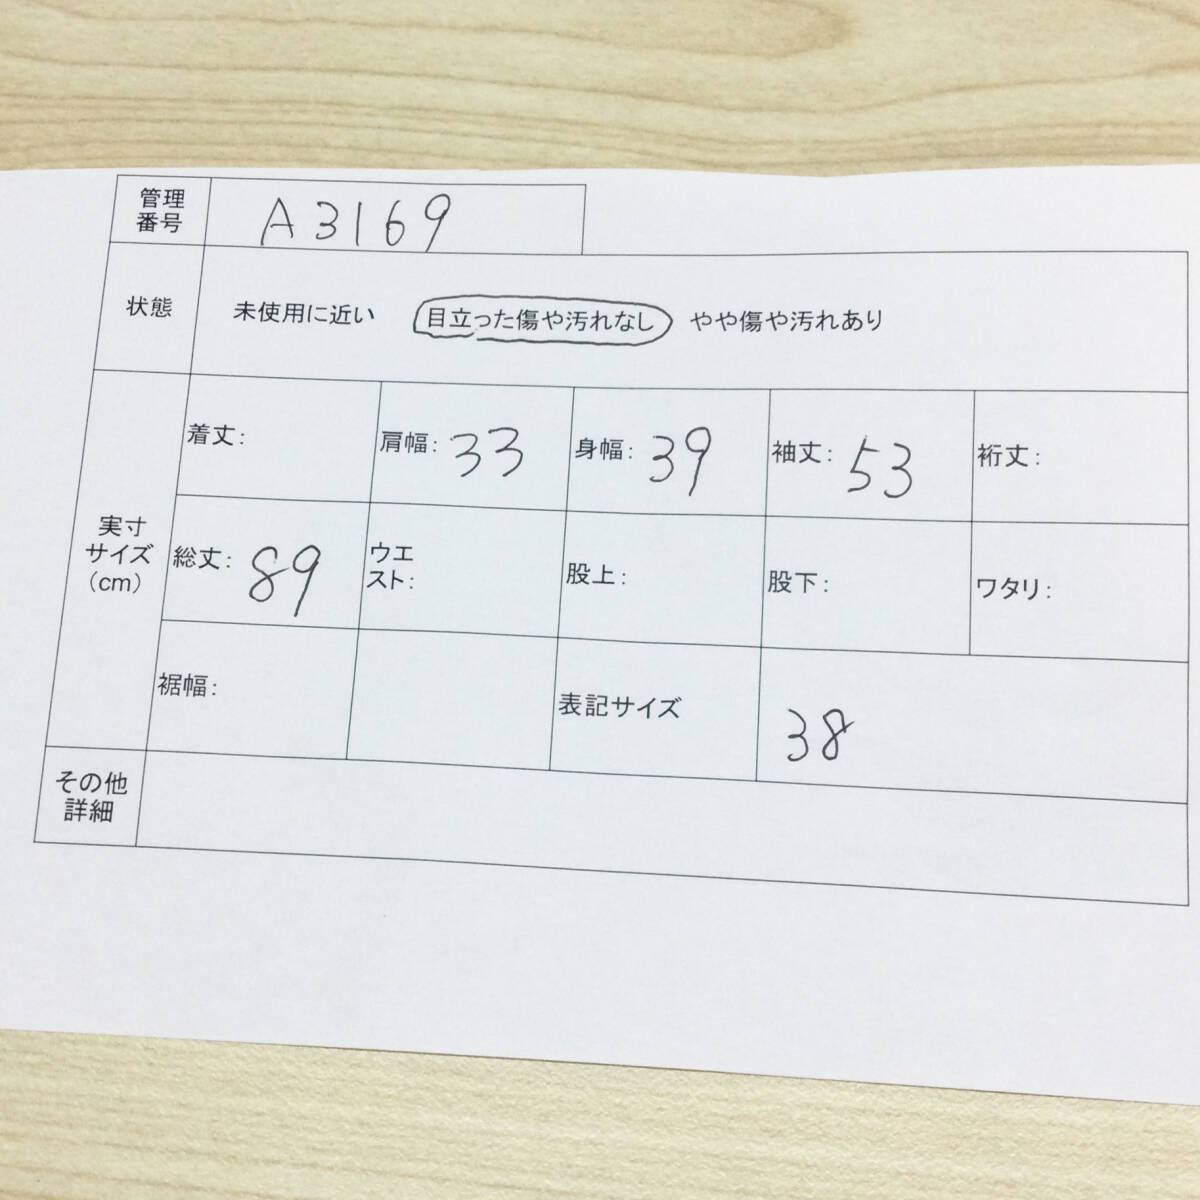 管理
番号
A3169
状態
未使用に近い 目立った傷や汚れなし やや傷や汚れあり
実寸
サイズ
(cm)
着丈: 肩幅: 33 身幅: 39 袖丈: 53 裄丈:
総丈: 89 ウエ
スト: 股上: 股下: ワタリ:
裾幅: 表記サイズ 38
その他
詳細